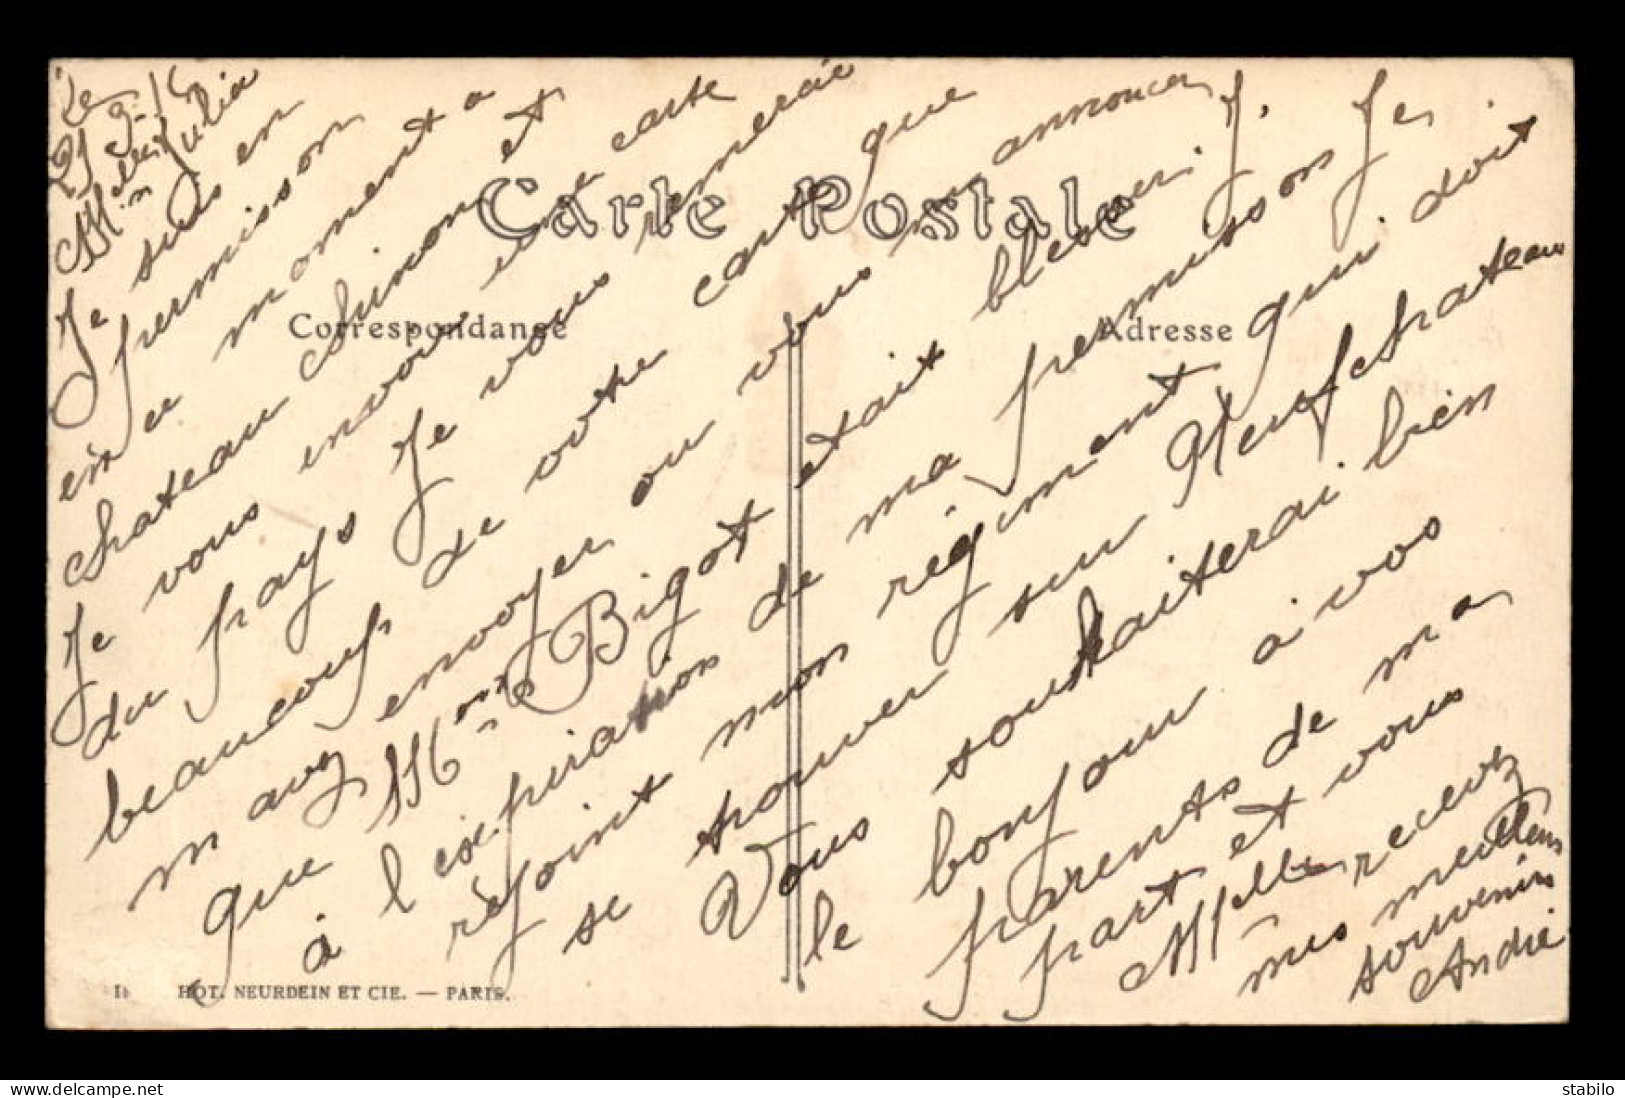 Le
21-9-16
Melle Julia
Je suis en
permission
en ce moment a
chateau chinon et
Je vous envoi une carte
du pays Je vous remercie
beaucoup de votre carte que
m avez envoyer ou vous m annoncer
que Mon Bigot etait blesser. J.
à l expiration de ma permission Je
rejoint mon régiment qui doit
se trouver sur Neufchateau
Vous souhaiterai bien
le bonjour a vos
parents de ma
part et vous
Melle recevez
mes meilleurs
souvenirs
André
Carte Postale
Correspondance
Adresse
PHOT. NEURDEIN ET CIE. — PARIS.
delcampe.net
stabilo